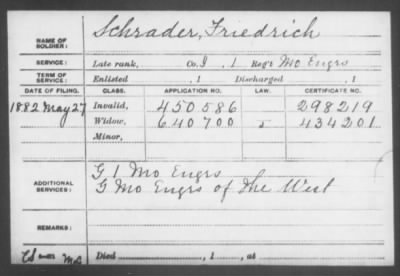 NAME OF SOLDIER: Schrader, Friedrich
SERVICE: Late rank, Co. I, 1 Reg't Mo Engrs
TERM OF SERVICE: Enlisted , 1 Discharged , 1
DATE OF FILING. CLASS. APPLICATION NO. LAW. CERTIFICATE NO.
1882 May 27 Invalid, 450586 298219
Widow, 640700 434201
Minor,
ADDITIONAL SERVICES: G 1 Mo Engrs
G Mo Engrs of the West
REMARKS:
Died , 1 , at